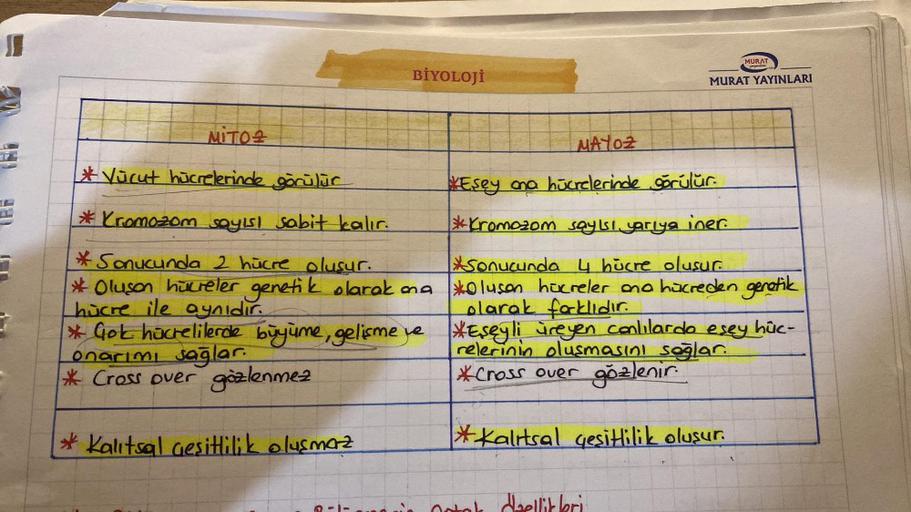 BİYOLOJİ
MURAT
MURAT YAYINLARI
MİTOZ
* Vücut hücrelerinde görülür
* Kromozom sayısı sabit kalır.
* Sonucunda 2 hücre oluşur.
* Oluşan hücreler genetik olarak ana
hücre ile aynıdır.
* Çok hücrelilerde büyüme, gelişme ve
onarımı sağlar.
* Cross over gözlenmez
* Kalıtsal çeşitlilik oluşmaz
MAYOZ
* Eşey ana hücrelerinde görülür.
* Kromozom sayısı yarıya iner.
* Sonucunda 4 hücre oluşur.
* Oluşan hücreler ana hücreden genetik
olarak farklıdır.
* Eşeyli üreyen canlılarda eşey hüc-
relerinin oluşmasını sağlar.
* Cross over gözlenir.
* Kalıtsal çeşitlilik oluşur.
Ortak Özellikleri